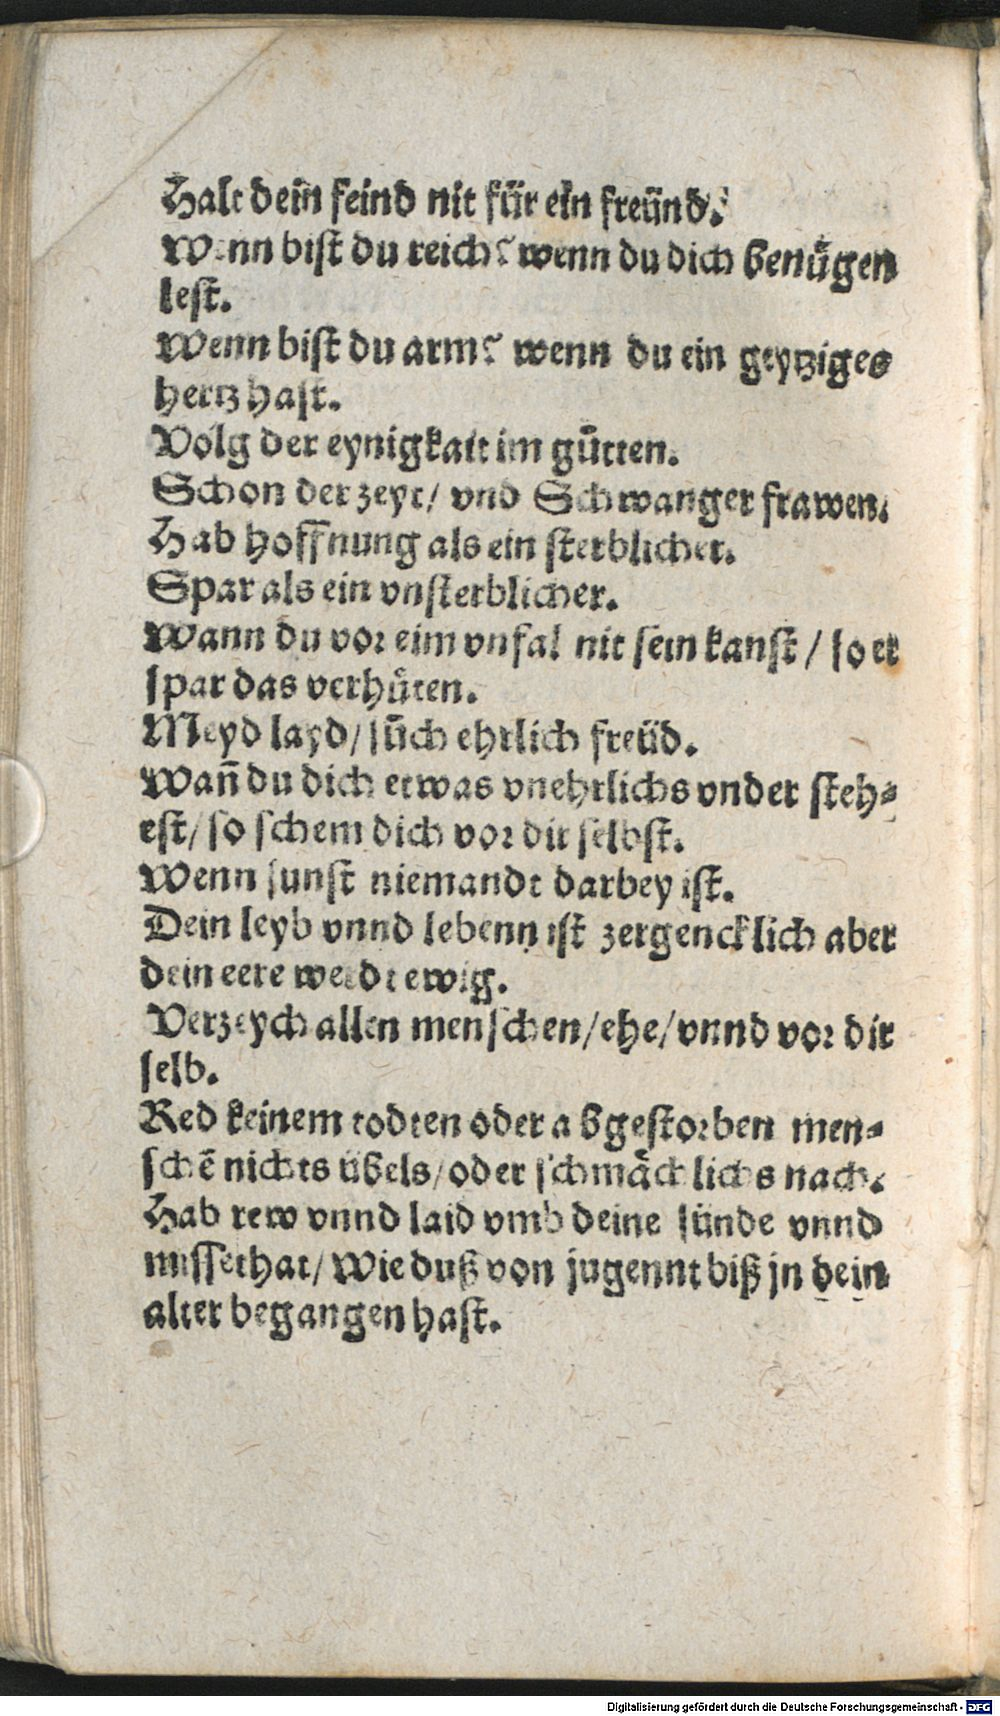 Halt dein feind nit für ein freünd.
Wenn bist du reich? wenn du dich benuͤgen
lest.
Wenn bist du arm? wenn du ein geytziges
hertz hast.
Volg der eynigkait im guͤtten.
Schon der zeyt/ vnd Schwanger frawen.
Hab hoffnung als ein sterblicher.
Spar als ein vnsterblicher.
Wann du vor eim vnfal nit sein kanst / so er
spar das verhuͤten.
Meyd layd/ suͤch ehrlich freüd.
Wañ du dich etwas vnehrlichs vnder steh⸗
est/ so schem dich vor dir selbst.
Wenn sunst niemandt darbey ist.
Dein leyb vnnd lebenn ist zergencklich aber
dein eere werdt ewig.
Verzeych allen menschen/ehe/vnnd vor dir
selb.
Red keinem todten oder abgestorben men⸗
schē nichts übels/ oder schmaͤchlichs nach.
Hab rew vnnd laid vmb deine sünde vnnd
missethat/ Wie duß von jugennt biß jn dein
alter begangen hast.
Digitalisierung gefördert durch die Deutsche Forschungsgemeinschaft - DFG